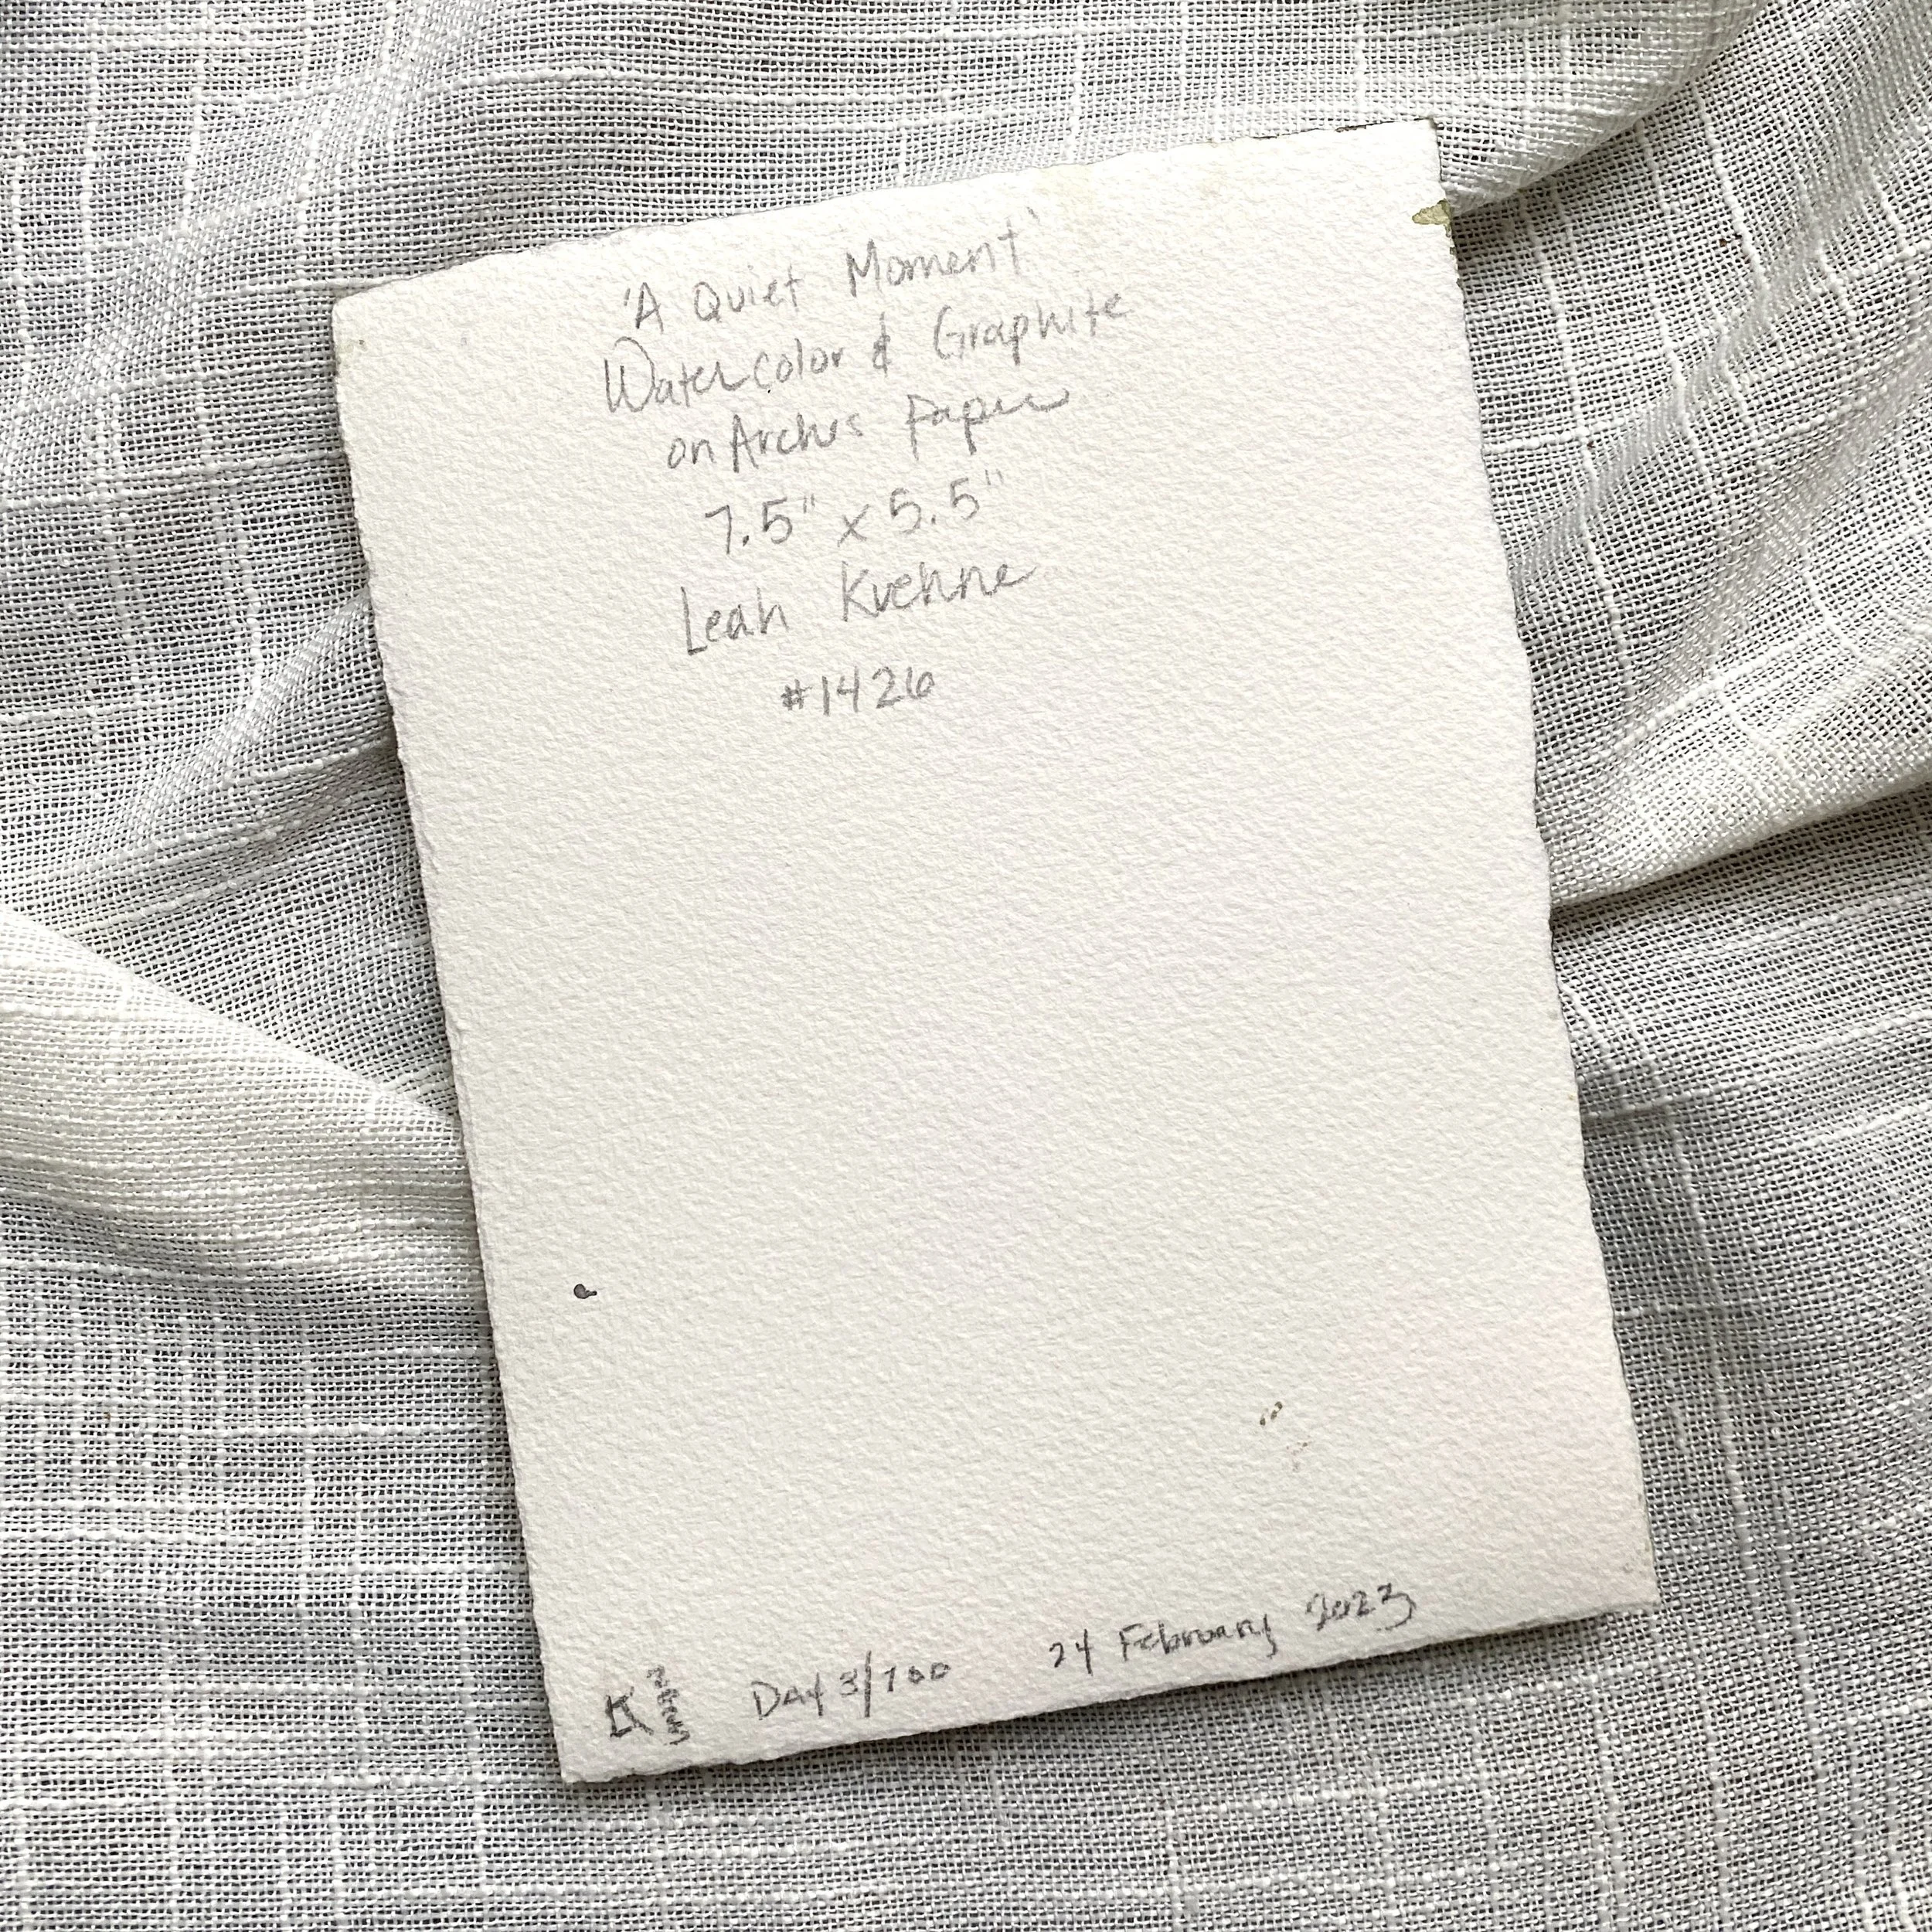 'A Quiet Moment'
Watercolor & Graphite
on Arches Paper
7.5" x 5.5"
Leah Kuehne
#1426
LK 2023 Day 3/100 24 February 2023